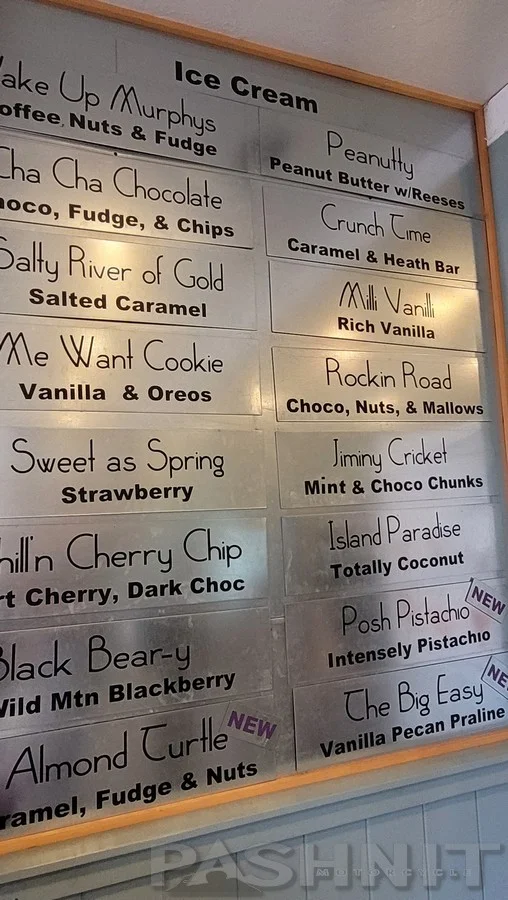 Ice Cream
ake Up Murphys
offee, Nuts & Fudge
Cha Cha Chocolate
hoco, Fudge, & Chips
Salty River of Gold
Salted Caramel
Me Want Cookie
Vanilla & Oreos
Sweet as Spring
Strawberry
hill'n Cherry Chip
rt Cherry, Dark Choc
Black Bear-y
Wild Mtn Blackberry
Almond Turtle
NEW
ramel, Fudge & Nuts
Peanutty
Peanut Butter w/Reeses
Crunch Time
Caramel & Heath Bar
Milli Vanilli
Rich Vanilla
Rockin Road
Choco, Nuts, & Mallows
Jiminy Cricket
Mint & Choco Chunks
Island Paradise
Totally Coconut
Posh Pistachio
NEW
Intensely Pistachio
The Big Easy
NE
Vanilla Pecan Praline
PASHNIT
MOTORCYCLE